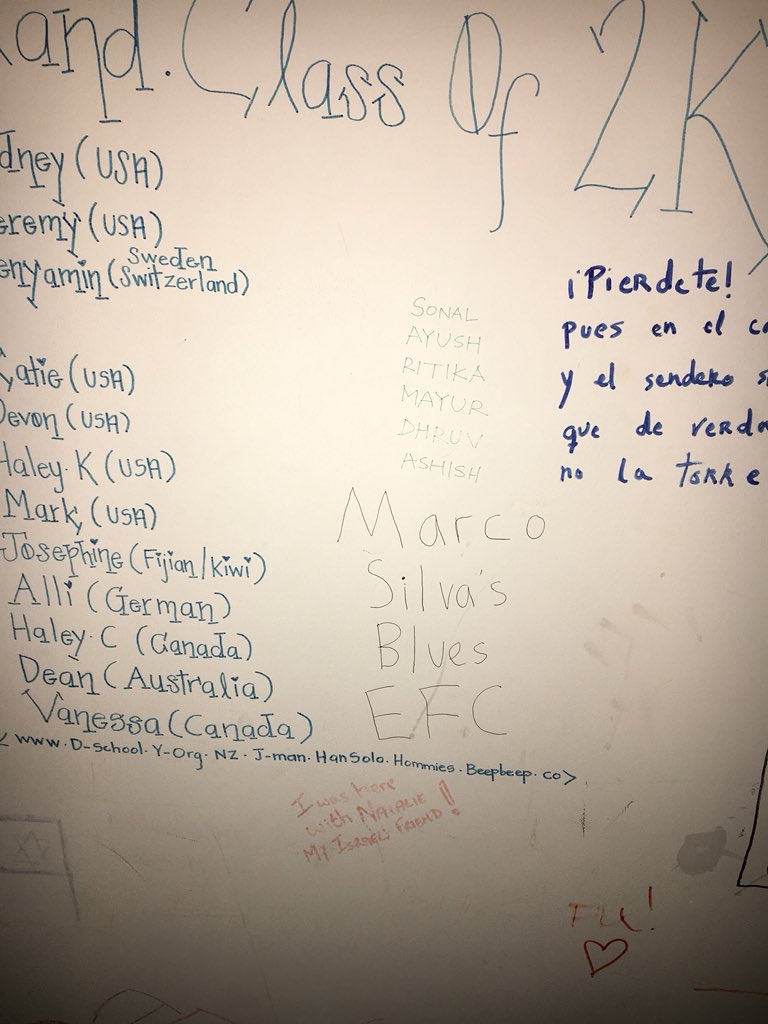 and. Class Of 2K
dney (USA)
eremy (USA)
Sweden
enyamin (Switzerland)
Katie (USA)
Devon (USA)
Haley.K (USA)
Mark, (USA)
Josephine (Fijian/Kiwi)
Alli (German)
Haley.C (Canada)
Dean (Australia)
Vanessa (Canada)
www.D-School.Y-Org.NZ.J-man.HanSolo.Hommies.Beepbeep.co>
SONAL
AYUSH
RITIKA
MAYUR
DHRUV
ASHISH
Marco
Silva's
Blues
EFC
¡Pierdete!
pues en el c
y el sendero s
que de verda
no la torre
I was here
with NATALIE
MY ISRAELI FRIEND!